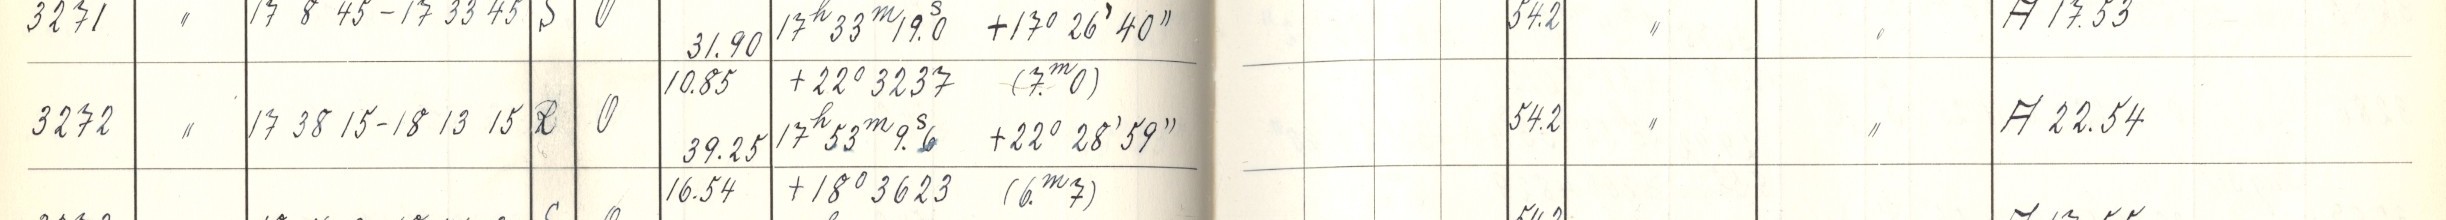 3271 " 17 8 45 - 17 33 45 S 0 31.90 17h 33m 19.s0 +17° 26' 40" 54.2 " " A 17.53
10.85 +22° 3237 (7.m0)
3272 " 17 38 15 - 18 13 15 R 0 39.25 17h 53m 9.s6 +22° 28' 59" 54.2 " " A 22.54
16.54 +18° 3623 (6.m7)